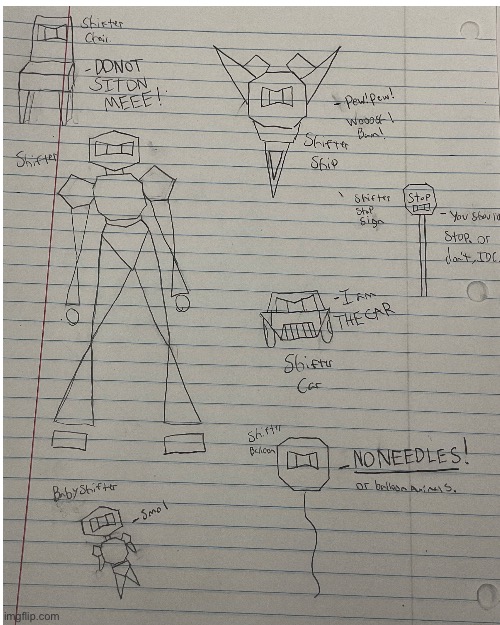 Shifter
Chair.
- DO NOT
SIT ON
MEEE!
- Pew! Pew!
Woosh!
Bam!
Shifter
Ship
Shifter
Shifter
Stop
Sign
STOP
- You should
STOP, or
don't, IDC.
- I am
THE CAR
Shifter
Car
Shifter
Balloon
- NO NEEDLES!
or balloon animals.
Baby Shifter
- Smol
imgflip.com